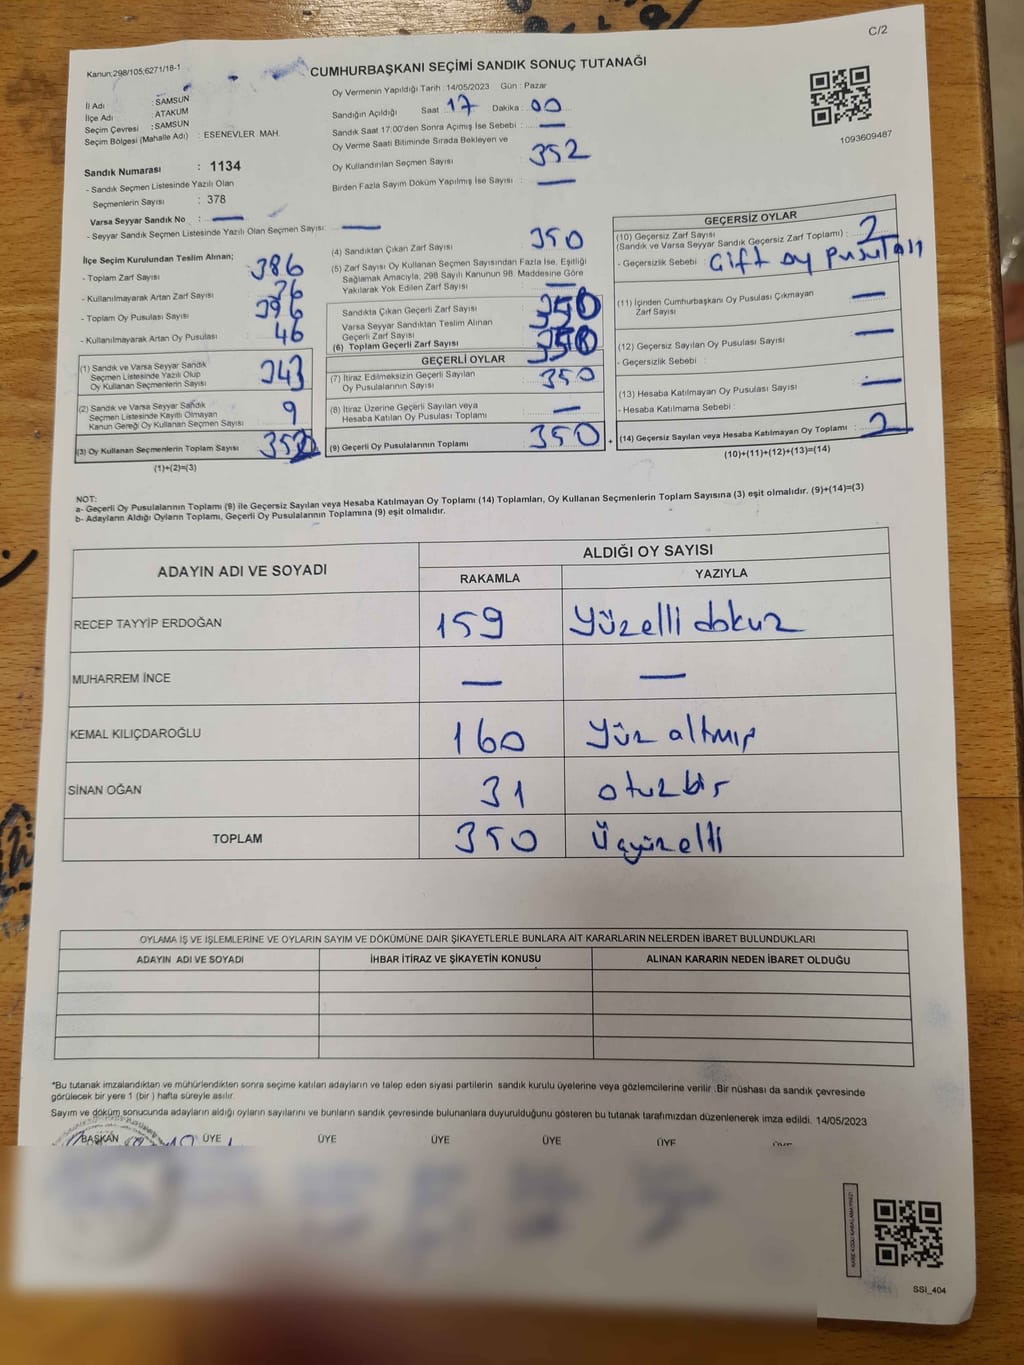 C/2
Kanun;298/105;6271/18-1
CUMHURBAŞKANI SEÇİMİ SANDIK SONUÇ TUTANAĞI
İl Adı : SAMSUN
İlçe Adı : ATAKUM
Seçim Çevresi : SAMSUN
Seçim Bölgesi (Mahalle Adı) : ESENEVLER MAH.
Sandık Numarası : 1134
- Sandık Seçmen Listesinde Yazılı Olan
Seçmenlerin Sayısı : 378
Varsa Seyyar Sandık No : —
- Seyyar Sandık Seçmen Listesinde Yazılı Olan Seçmen Sayısı: —
Oy Vermenin Yapıldığı Tarih : 14/05/2023 Gün : Pazar
Sandığın Açıldığı Saat : 17 Dakika : 00
Sandık Saat 17:00'den Sonra Açımış İse Sebebi : —
Oy Verme Saati Bitiminde Sırada Bekleyen ve
Oy Kullandırılan Seçmen Sayısı : 352
Birden Fazla Sayım Döküm Yapılmış İse Sayısı : —
1093609487
İlçe Seçim Kurulundan Teslim Alınan;
- Toplam Zarf Sayısı : 386
- Kullanılmayarak Artan Zarf Sayısı : 36
- Toplam Oy Pusulası Sayısı : 396
- Kullanılmayarak Artan Oy Pusulası : 46
(1) Sandık ve Varsa Seyyar Sandık
Seçmen Listesinde Yazılı Olup
Oy Kullanan Seçmenlerin Sayısı : 343
(2) Sandık ve Varsa Seyyar Sandık
Seçmen Listesinde Kayıtlı Olmayan
Kanun Gereği Oy Kullanan Seçmen Sayısı : 9
(3) Oy Kullanan Seçmenlerin Toplam Sayısı : 352
(1)+(2)=(3)
(4) Sandıktan Çıkan Zarf Sayısı : 350
(5) Zarf Sayısı Oy Kullanan Seçmen Sayısından Fazla İse, Eşitliği
Sağlamak Amacıyla, 298 Sayılı Kanunun 98. Maddesine Göre
Yakılarak Yok Edilen Zarf Sayısı : —
Sandıkta Çıkan Geçerli Zarf Sayısı : 350
Varsa Seyyar Sandıktan Teslim Alınan
Geçerli Zarf Sayısı
(6) Toplam Geçerli Zarf Sayısı : 350
GEÇERLİ OYLAR
(7) İtiraz Edilmeksizin Geçerli Sayılan
Oy Pusulalarının Sayısı : 350
(8) İtiraz Üzerine Geçerli Sayılan veya
Hesaba Katılan Oy Pusulası Toplamı : —
(9) Geçerli Oy Pusulalarının Toplamı : 350
+
GEÇERSİZ OYLAR
(10) Geçersiz Zarf Sayısı
(Sandık ve Varsa Seyyar Sandık Geçersiz Zarf Toplamı) : 2
- Geçersizlik Sebebi : Çift oy pusulası
(11) İçinden Cumhurbaşkanı Oy Pusulası Çıkmayan
Zarf Sayısı : —
(12) Geçersiz Sayılan Oy Pusulası Sayısı : —
- Geçersizlik Sebebi :
(13) Hesaba Katılmayan Oy Pusulası Sayısı : —
- Hesaba Katılmama Sebebi :
(14) Geçersiz Sayılan veya Hesaba Katılmayan Oy Toplamı : 2
(10)+(11)+(12)+(13)=(14)
NOT:
a- Geçerli Oy Pusulalarının Toplamı (9) ile Geçersiz Sayılan veya Hesaba Katılmayan Oy Toplamı (14) Toplamları, Oy Kullanan Seçmenlerin Toplam Sayısına (3) eşit olmalıdır. (9)+(14)=(3)
b- Adayların Aldığı Oyların Toplamı, Geçerli Oy Pusulalarının Toplamına (9) eşit olmalıdır.
ADAYIN ADI VE SOYADI ALDIĞI OY SAYISI
RAKAMLA YAZIYLA
RECEP TAYYİP ERDOĞAN 159 Yüzelli dokuz
MUHARREM İNCE — —
KEMAL KILIÇDAROĞLU 160 Yüz altmış
SİNAN OĞAN 31 otuzbir
TOPLAM 350 Üçyüzelli
OYLAMA İŞ VE İŞLEMLERİNE VE OYLARIN SAYIM VE DÖKÜMÜNE DAİR ŞİKAYETLERLE BUNLARA AİT KARARLARIN NELERDEN İBARET BULUNDUKLARI
ADAYIN ADI VE SOYADI İHBAR İTİRAZ VE ŞİKAYETİN KONUSU ALINAN KARARIN NEDEN İBARET OLDUĞU
*Bu tutanak imzalandıktan ve mühürlendikten sonra seçime katılan adayların ve talep eden siyasi partilerin sandık kurulu üyelerine veya gözlemcilerine verilir .Bir nüshası da sandık çevresinde
görülecek bir yere 1 (bir ) hafta süreyle asılır.
Sayım ve döküm sonucunda adayların aldığı oyların sayılarını ve bunların sandık çevresinde bulunanlara duyurulduğunu gösteren bu tutanak tarafımızdan düzenlenerek imza edildi. 14/05/2023
BAŞKAN ÜYE ÜYE ÜYE ÜYE ÜYE ÜYE
SSI_404